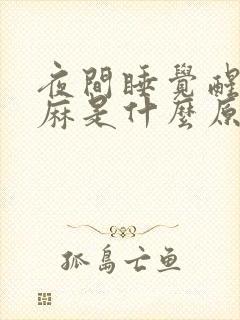 夜間睡覺醒
麻是什麼原
孤島亡魚